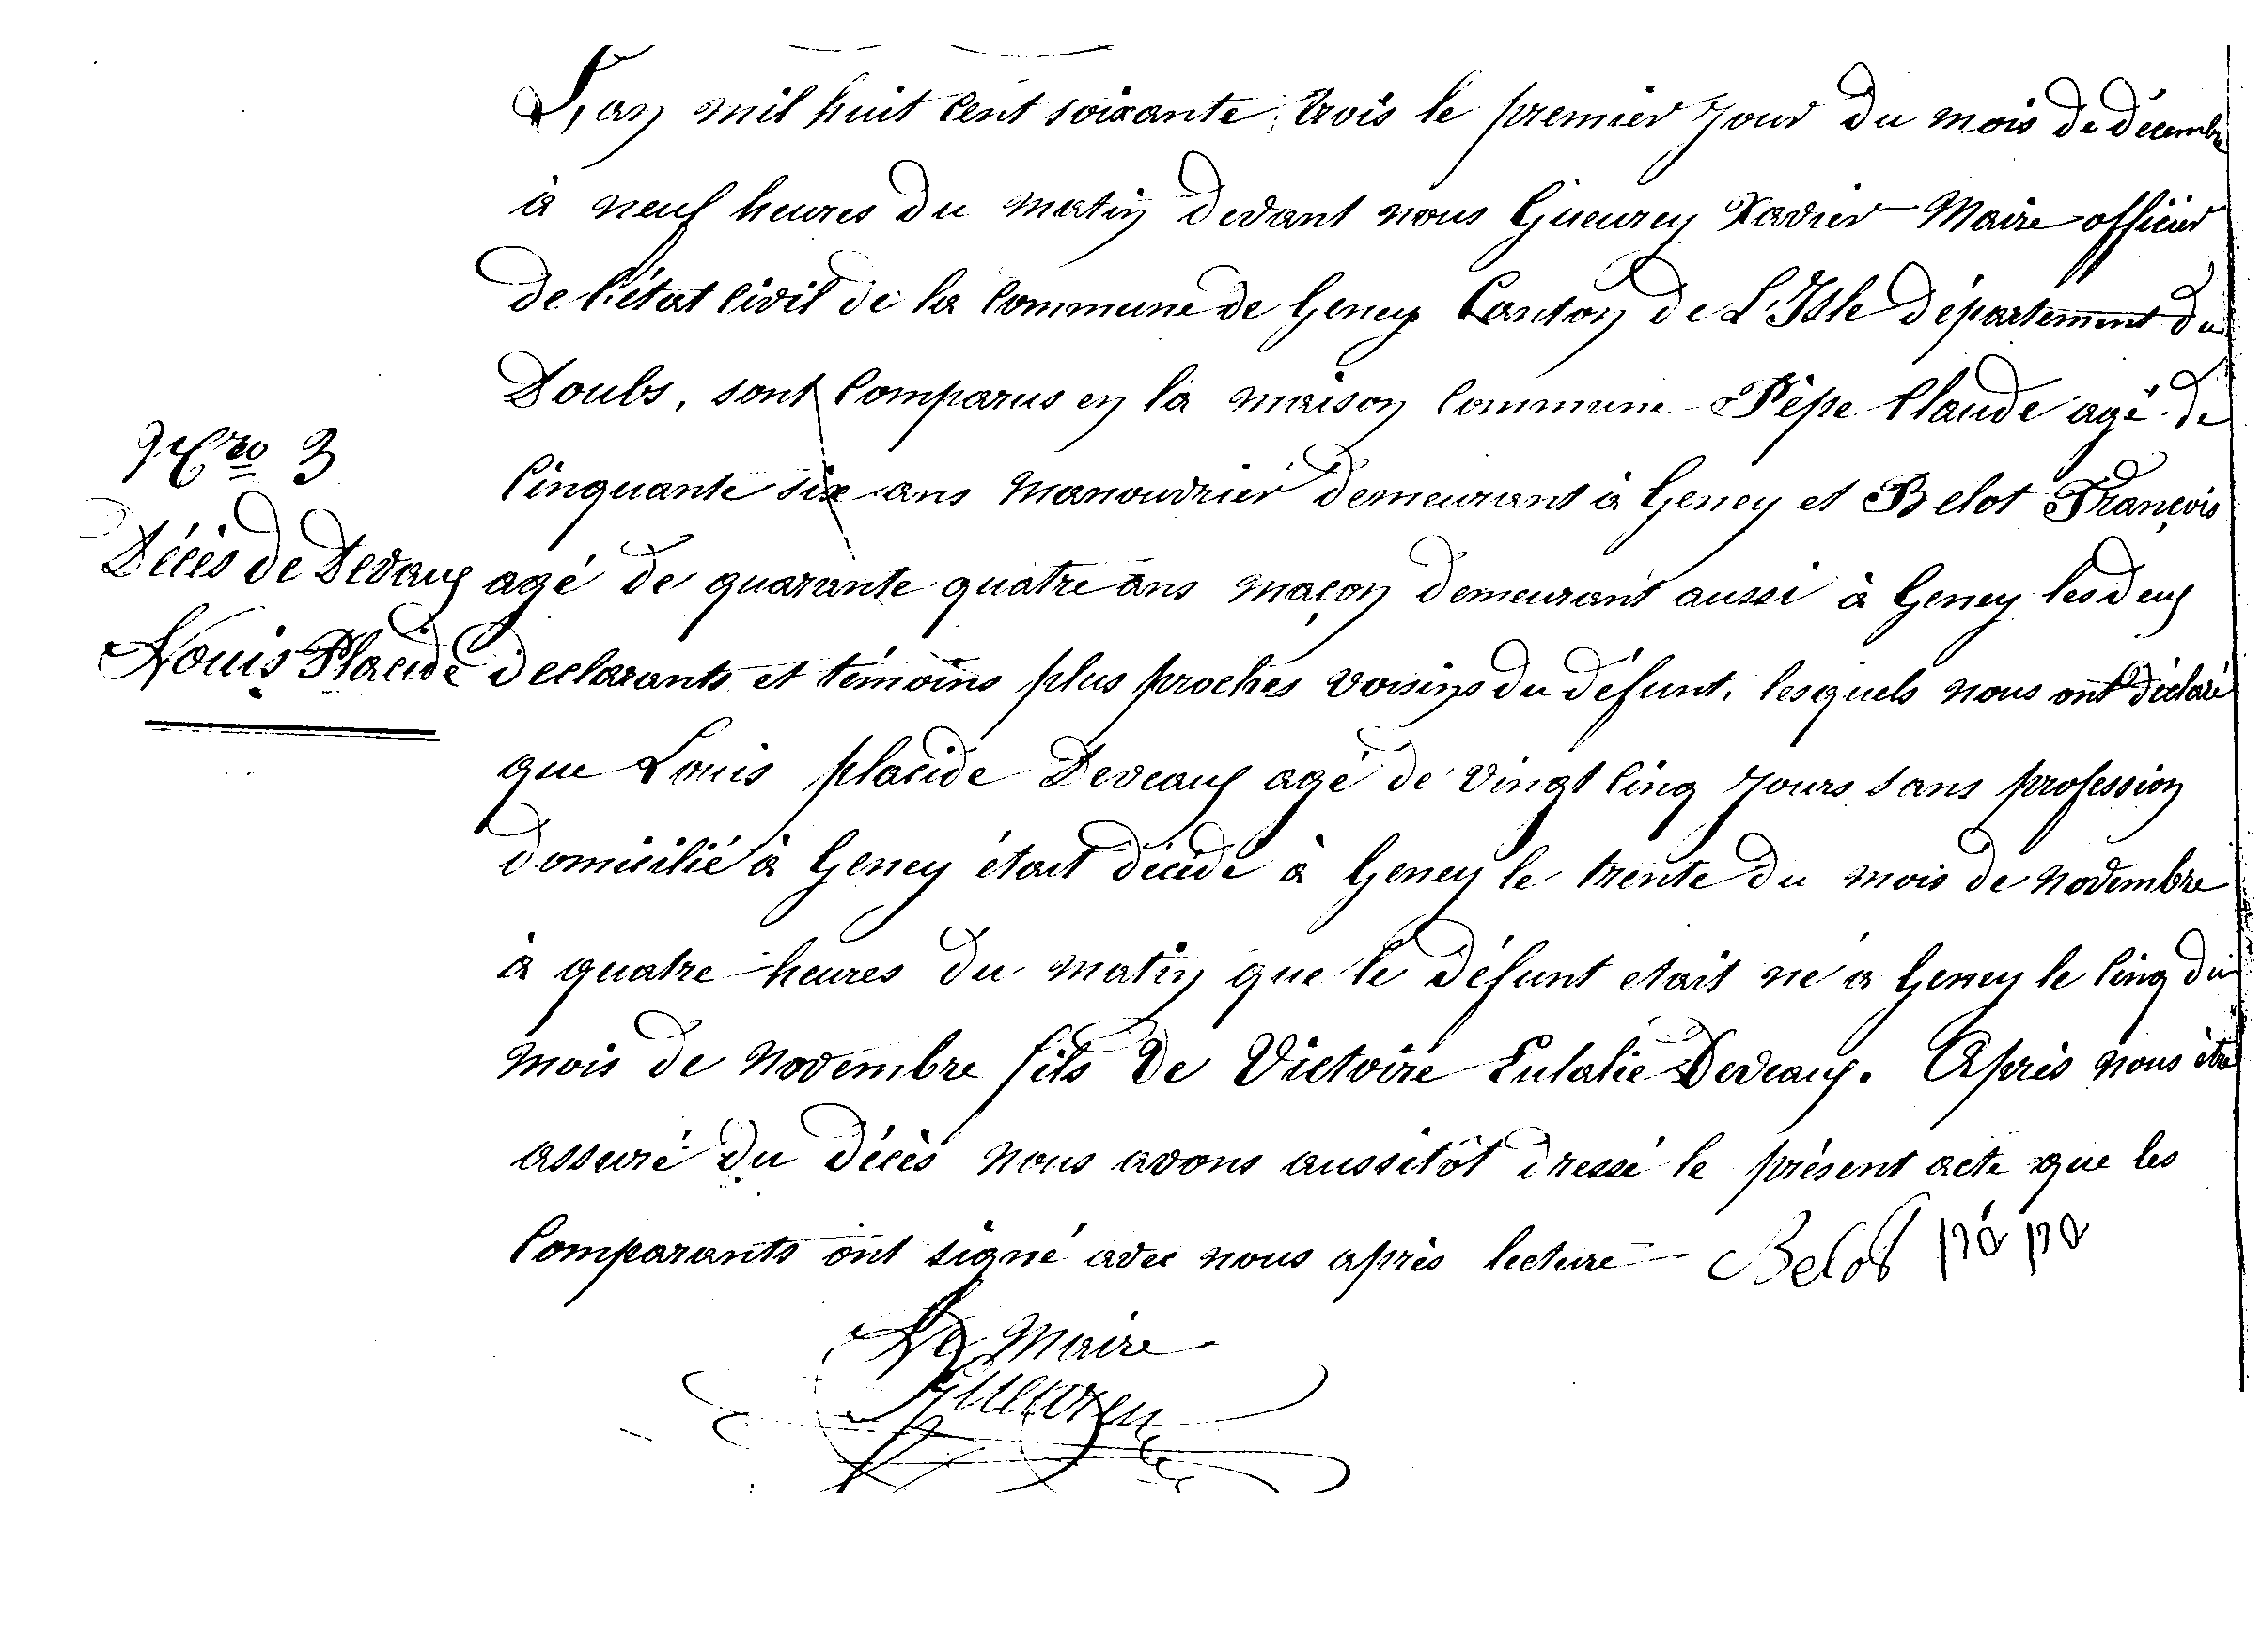 L'an mil huit cent soixante trois le premier jour du mois de décembre
à neuf heures du matin devant nous Gueurey Xavier Maire officier
de l'état civil de la commune de Geney Canton de L'Isle département du
Doubs, sont comparus en la maison commune Pépe Claude agé de
cinquante six ans manouvrier demeurant à Geney et Belot François
agé de quarante quatre ans maçon demeurant aussi à Geney les deux
declarants et témoins plus proches voisins du défunt, lesquels nous ont déclaré
que Louis placide Deveaux agé de vingt cinq jours sans profession
domicilié à Geney était décédé à Geney le trente du mois de novembre
à quatre heures du matin que le défunt etait né à Geney le cinq du
mois de novembre fils de Victoire Eulalie Deveaux. Après nous être
assuré du décès nous avons aussitôt dressé le présent acte que les
comparants ont signé avec nous après lecture Belot pépe
Le Maire
Gueurey
Nero 3
Décès de Devaux
Louis Placide